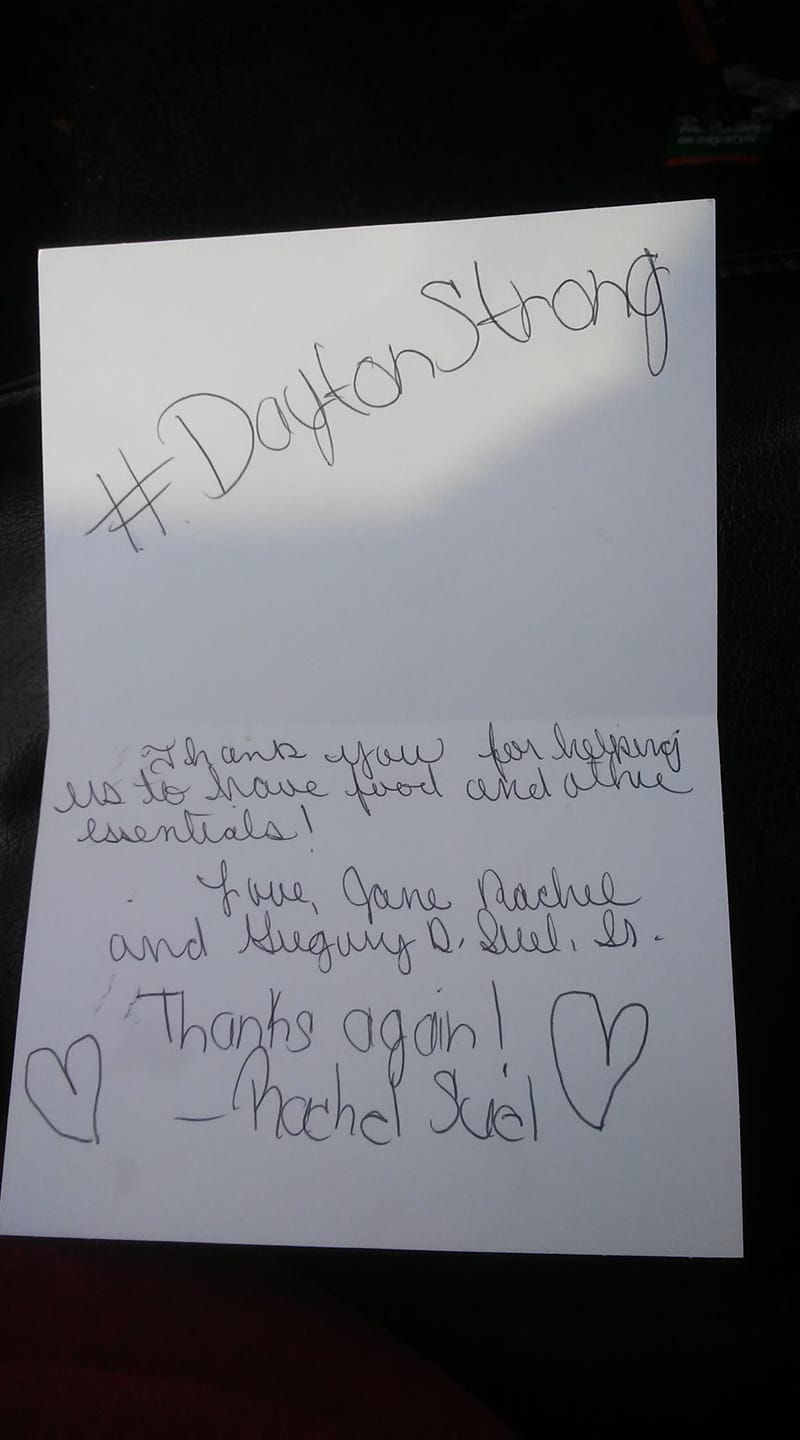 #DaytonStrong
Thank you for helping
us to have food and other
essentials!
Love, Jane Rachel
and Gregory D. Suel, Sr.
Thanks again!
-Rachel Suel